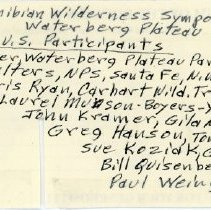 nibian Wilderness Sympo
Waterberg Plateau
U.S. Participants
er, Waterberg Plateau Par
lters, NPS, Santa Fe, N.
ris Ryan, Carhart Wild. Tr
Laurel M son-Boyers-
John Kramer, Gila N
Greg Hanson, To
Sue Kozid
Bill Quisenbe
Paul Wein